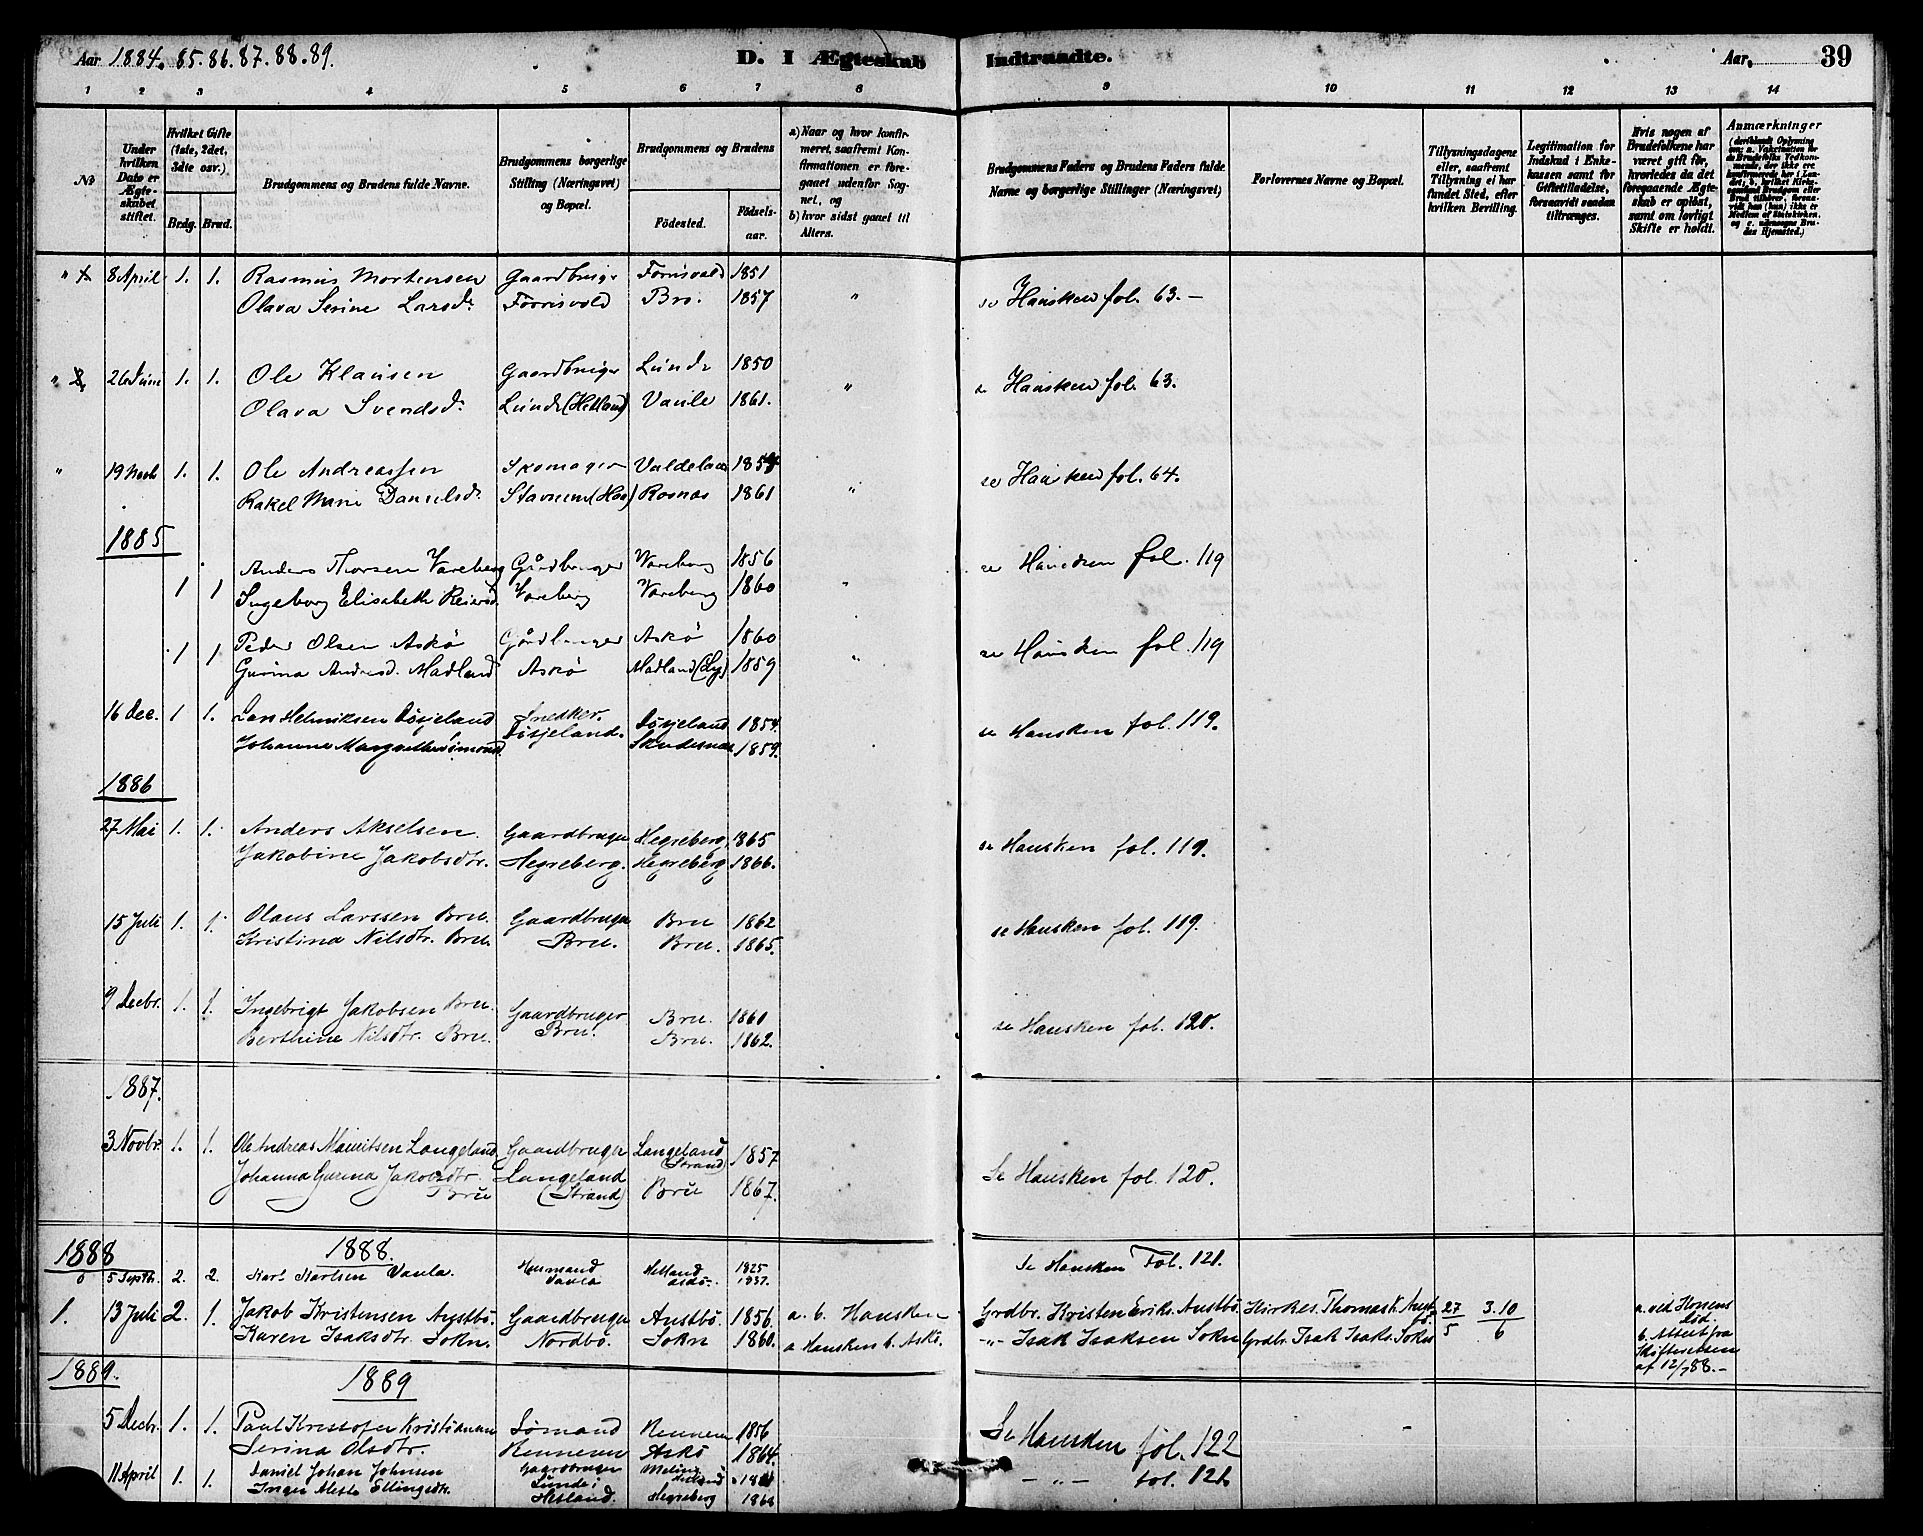 Aar 1884. 85. 86. 87. 88. 89.
D. I Ægteskab Indtraadte.
Aar, 39
1 2 3 4 5 6 7 8 9 10 11 12 13 14
No
Under hvilken Dato er Ægteskabet stiftet.
Hvilket Gifte (1ste, 2det, 3die osv.).
Brdg. Brud.
Brudgommens og Brudens fulde Navne.
Brudgommens borgerlige Stilling (Næringsvei) og Bopæl.
Brudgommens og Brudens
Födested.
Födselsaar.
a) Naar og hvor konfirmeret, saafremt Konfirmationen er foregaaet udenfor Sognet, og
b) hvor sidst gaaet til Alters.
Brudgommens Faders og Brudens Faders fulde Navne og borgerlige Stillinger (Næringsvei)
Forlovernes Navne og Bopæl.
Tillysningsdagene eller, saafremt Tillysning ei har fundet Sted, efter hvilken Bevilling.
Legitimation for Indskud i Enkekassen samt for Giftetilladelse, forsaavidt saadan tiltrænges.
Hvis nogen af Brudefolkene har været gift för, hvorledes da det foregaaende Ægteskab er oplöst, samt om lovligt Skifte er holdt.
Anmærkninger
" 8 April 1. 1. Rasmus Mortensen Gaardbruger Førrisvold 1851
Olava Serine Larsd. Førrisvold Bru. 1857 " se Hausken fol. 63. —
" 26 Juni 1. 1. Ole Klausen Gaardbruger Lunde 1850
Olava Svendsd. Lunde (Hetland) Vaule 1861. " se Hausken fol. 63.
" 19 Novb 1. 1. Ole Andreassen Skomager 1854
Rakel Marie Danielsd. 1861 " se Hausken fol. 64.
1885
Anders Thorsen Vareberg Gårdbruger Vareberg 1856
1 1 Ingeborg Elisabeth Reiersd. Vareberg Vareberg 1860 " se Hausken fol. 119
Peder Olsen Askø Gårdbruger Askø 1860
1 1 Gurina Andersd. Madland Askø Madland 1859 " se Hausken fol. 119
16 Dec. 1 1. Lars Helmiksen Døsjeland Snedker. Døsjeland 1854.
Johanne Margrethe Simonsd. Døsjeland. Skudesnæs 1859. se Hausken fol. 119.
1886
27 Mai 1. 1. Anders Akselsen. Gaardbruger Hegreberg, 1865
Jakobine Jakobsdtr. Hegreberg. Hegreberg 1866. se Hausken fol. 119.
15 Juli 1. 1. Olaus Larssen Bru. Gaardbruger Bru 1862
Kristina Nilsdtr. Bru. Bru. Bru. 1865. se Hausken fol. 119.
9 Decbr. 1. 1. Ingebrigt Jakobsen Bru. Gaardbruger Bru. 1861
Berthine Nilsdtr. Bru. Bru. Bru. 1862. se Hausken fol. 120.
1887.
3 Novbr. 1. 1. Ole Andreas Mauritsen Langeland Gaardbruger Langeland (Strand) 1857
Johanna Gurina Jakobsdtr. Bru Langeland (Strand) Bru 1867. Se Hausken fol. 120.
1888 1888.
5 Septbr. 2. 2. Karl Karlsen Vaula. Husmand Vaula 1825 1837. Se Hausken Fol. 121.
1. 13 Juli 2. 1. Jakob Kristensen Austbø. Gaardbruger Austbø. 1856. a. b. Hausken Grdbr. Kristen Eriks. Austbø. Kirkes. Thomas K. Austbø. 27/5 3.10/6 a. ved Konens død.
Karen Isaksdtr. Sokn. Nordbø. Sokn 1860. a Hausken b. Askø. -"- Isak Isaksen Sokn Grdbr. Isak Isaks. Sokn b. Attest fra Skifteretten af 12/7 88. —
1889. 1889
5 Decbr. 1. 1. Paul Kristofer Kristiansen Sømand Rennesø 1856
Serina Olsdtr. Rennesø Askø 1864. Se Hausken fol. 122
11 April 1. 1. Daniel Johan Johnsen Gaardbruger
Inger Meste Ellingsdtr. Lunde i Hetland. Hegreberg -"- fol. 121.